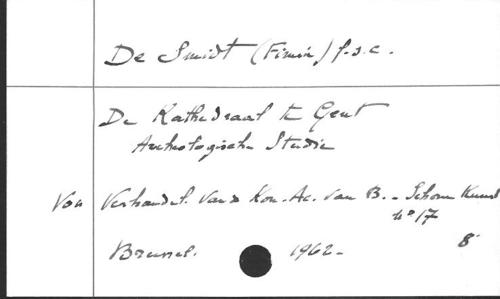 De Smidt (Firmin) f.s.c.
De Kathedraal te Gent
Archeologische Studie
Von Verhandel. van de Kon. Ac. van B. - Schone Kunst
nº 17
8º
Brussel. 1962 -